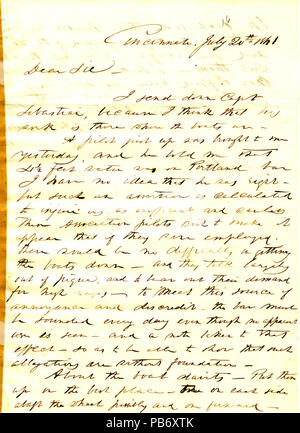 Cincinnati, July 20th 1861
Dear Sir -
I send down Capt
Sebastian, because I think that his
work is there where the boats are -
A pilot just up was brought to me
yesterday, and he told me that
six feet water was on Portland bar
I have no idea that he was right -
but such an assertion is calculated
to injure us, as inefficient and careless
than succeeding pilots and to make it
appear that if they were employed
there would be no difficulty in getting
the boats down - and they talk largely
out of pique, and to bear out their demand
for high wages - to meet this source of
annoyance and discredit the bar must
be sounded every day even though no apparent
use is seen - and a note taken to that
effect so as to be able to show that such
allegations are without foundation -
About the boat davits - Put them
up in the best place - one on each side
abaft the shaft possibly and one forward -
alamy
PB6XTK